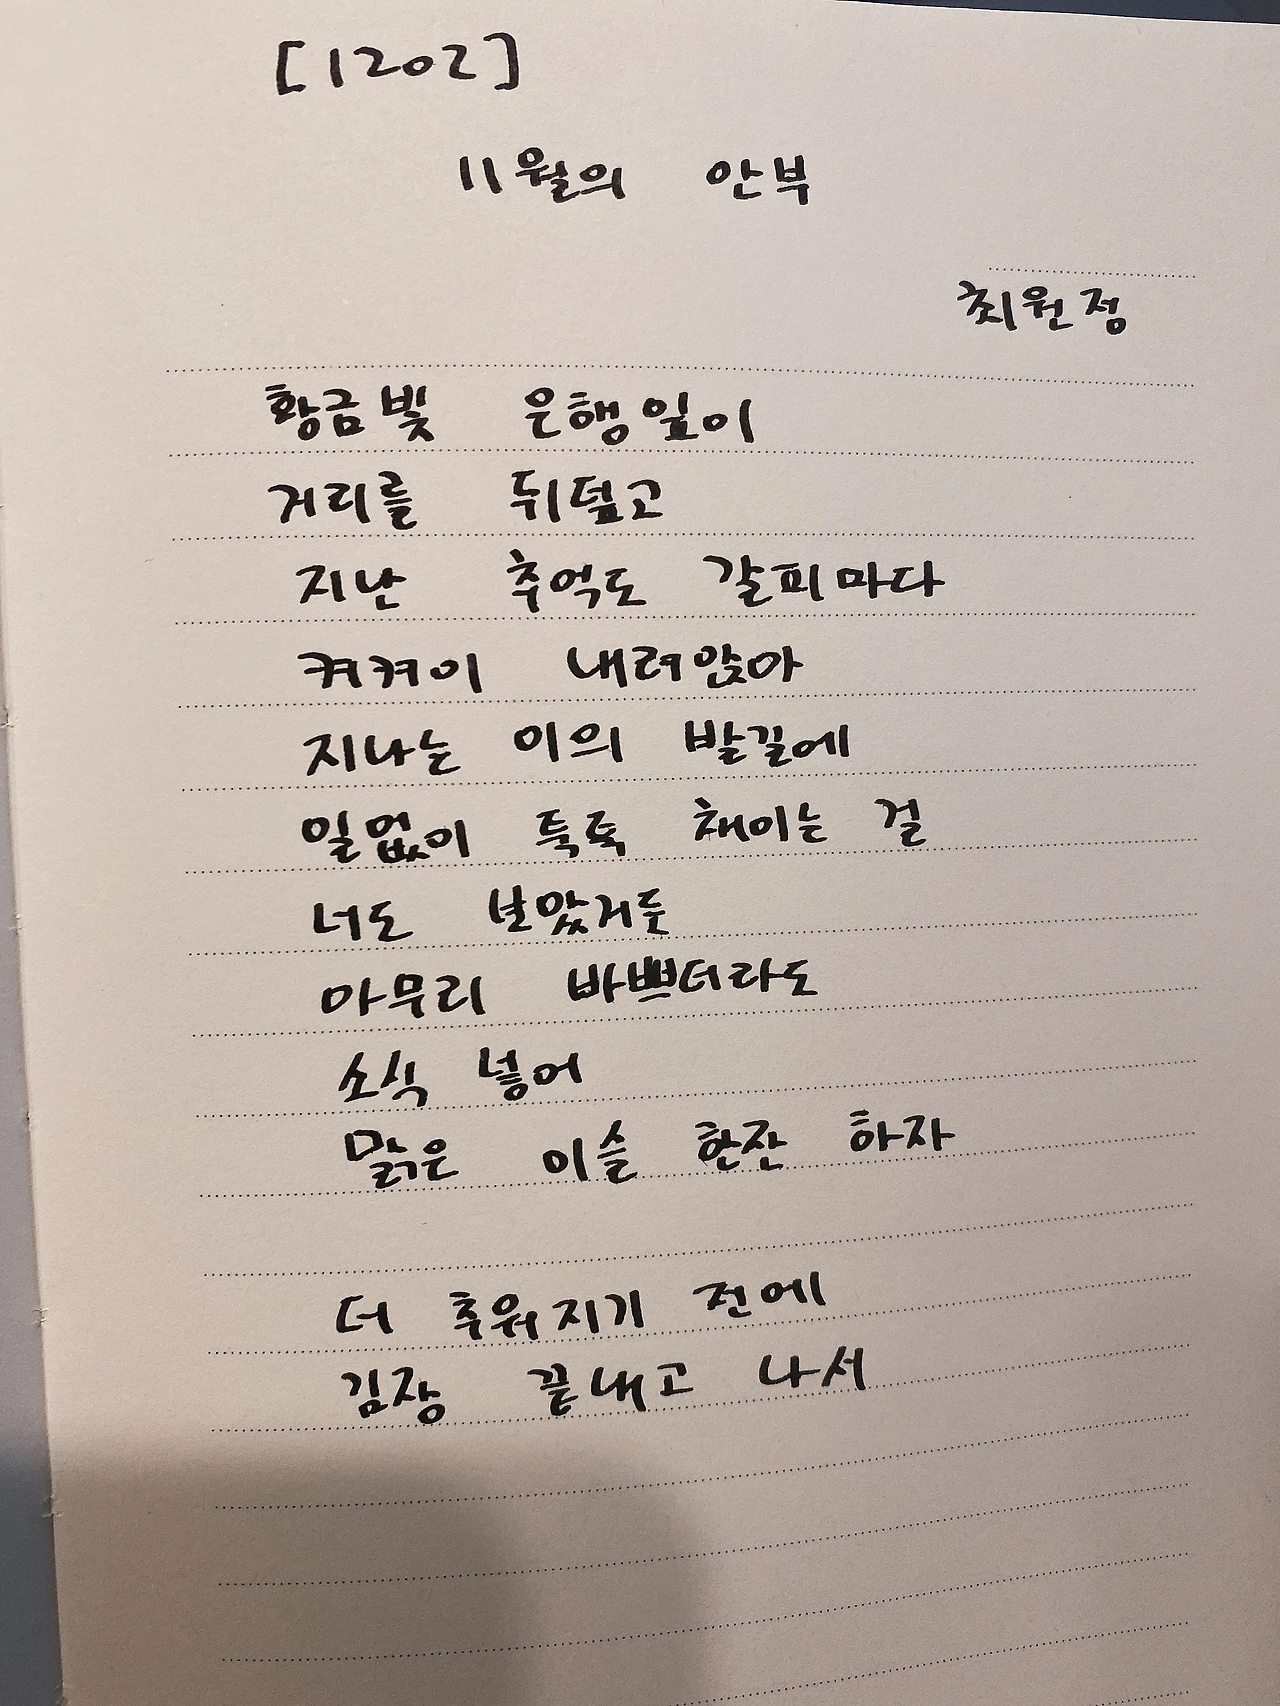 [1202]
11월의 안부
최원정
황금빛 은행잎이
거리를 뒤덮고
지난 추억도 갈피마다
켜켜이 내려앉아
지나는 이의 발길에
일없이 툭툭 채이는 걸
너도 보았거든
아무리 바쁘더라도
소식 넣어
맑은 이슬 한잔 하자
더 추워지기 전에
김장 끝내고 나서